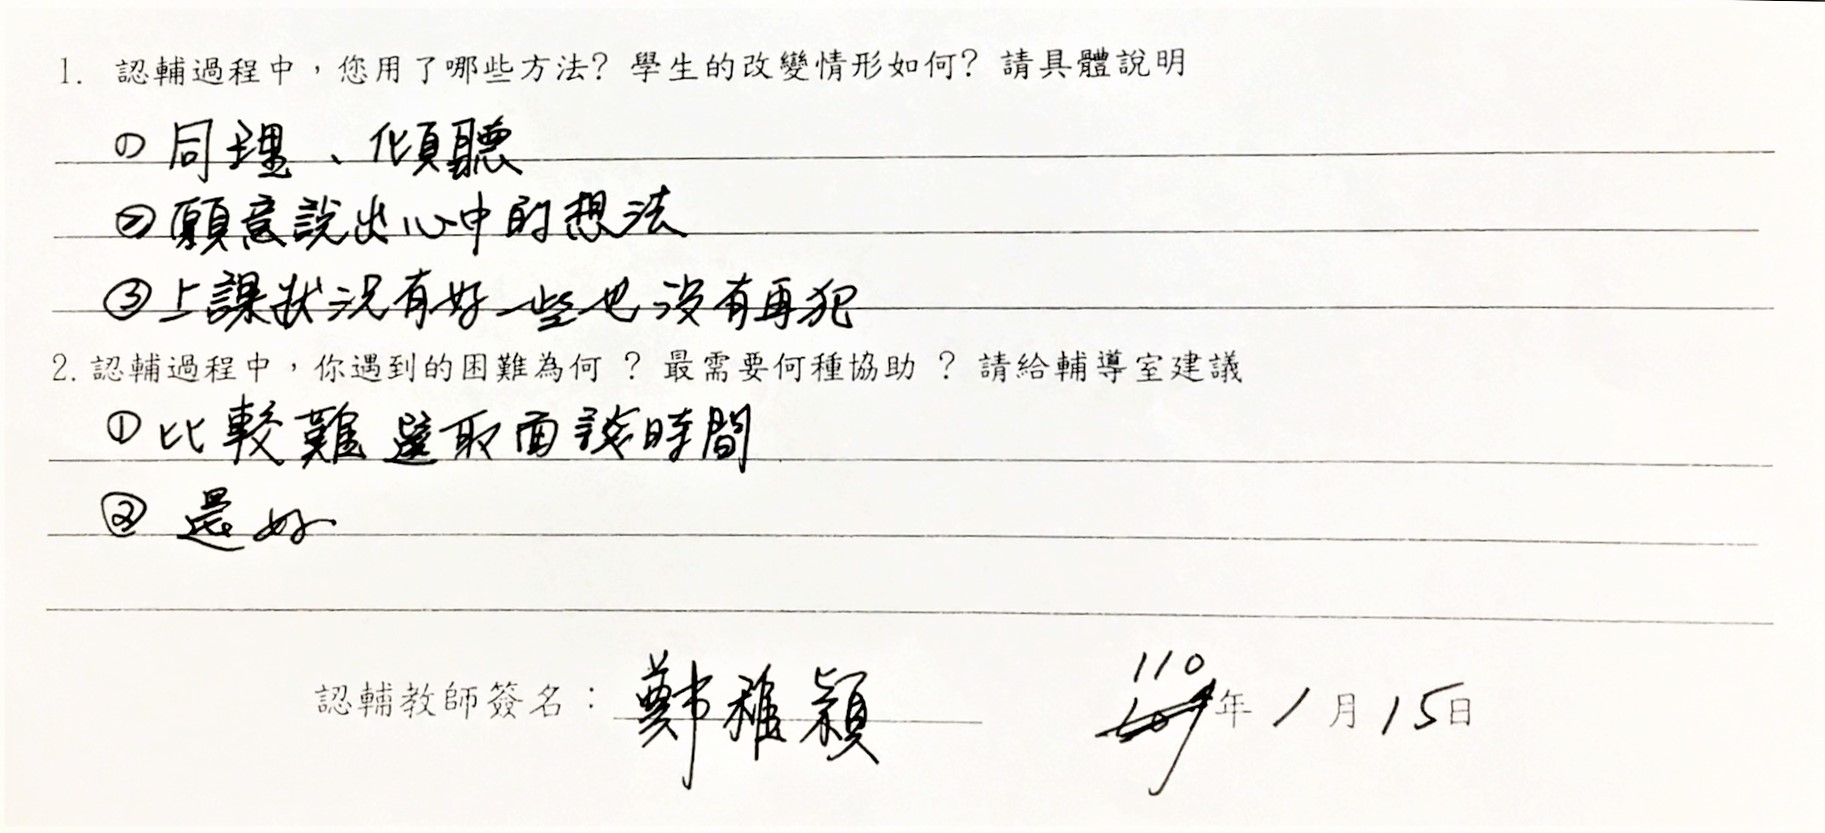 1. 認輔過程中，您用了哪些方法？學生的改變情形如何？請具體說明
① 同理、傾聽
② 願意說出心中的想法
③ 上課狀況有好一些也沒有再犯
2. 認輔過程中，你遇到的困難為何？最需要何種協助？請給輔導室建議
① 比較難選取面談時間
② 還好
認輔教師簽名：鄭雅穎 110年1月15日